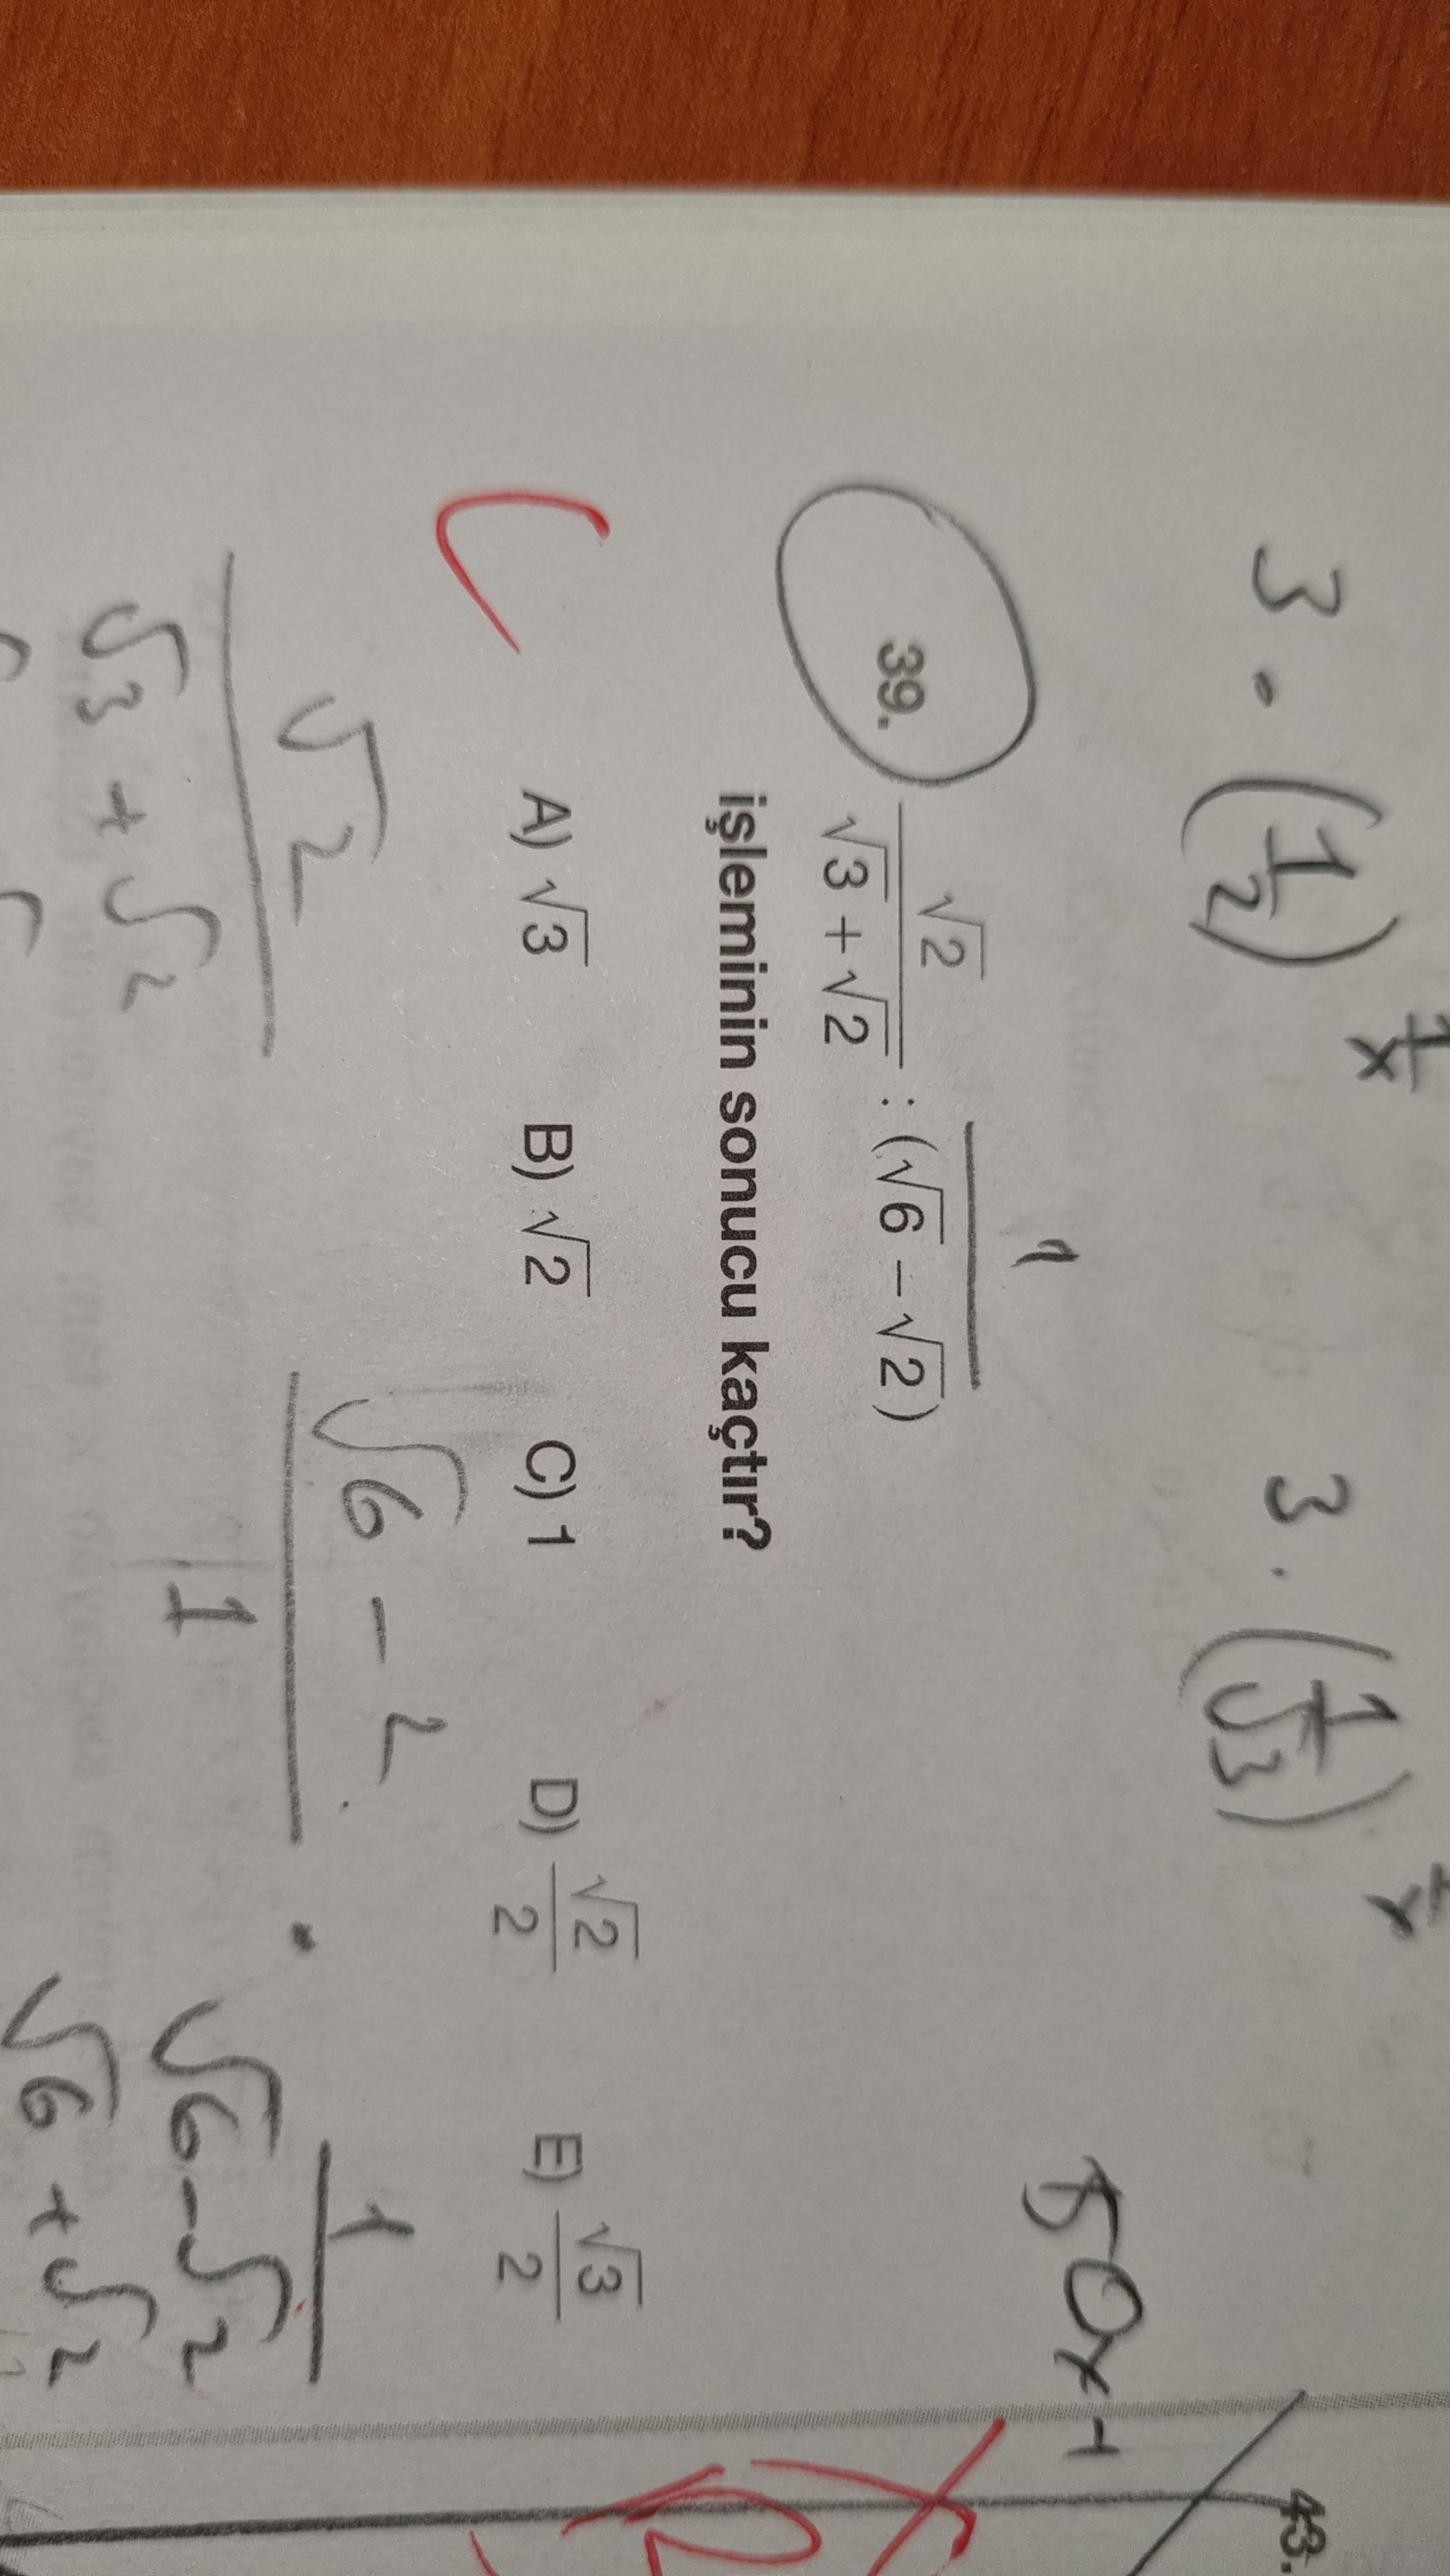 3 · (1/2) 1/x 3 · (1/√3)
50x-1
43.
1
39. √2/(√3 + √2) : (√6 − √2)
işleminin sonucu kaçtır?
A) √3 B) √2 C) 1 D) √2/2 E) √3/2
√2/(√3 + √2) (√6 - 2)/1 · 1/(√6 - √2)
√6 + √2